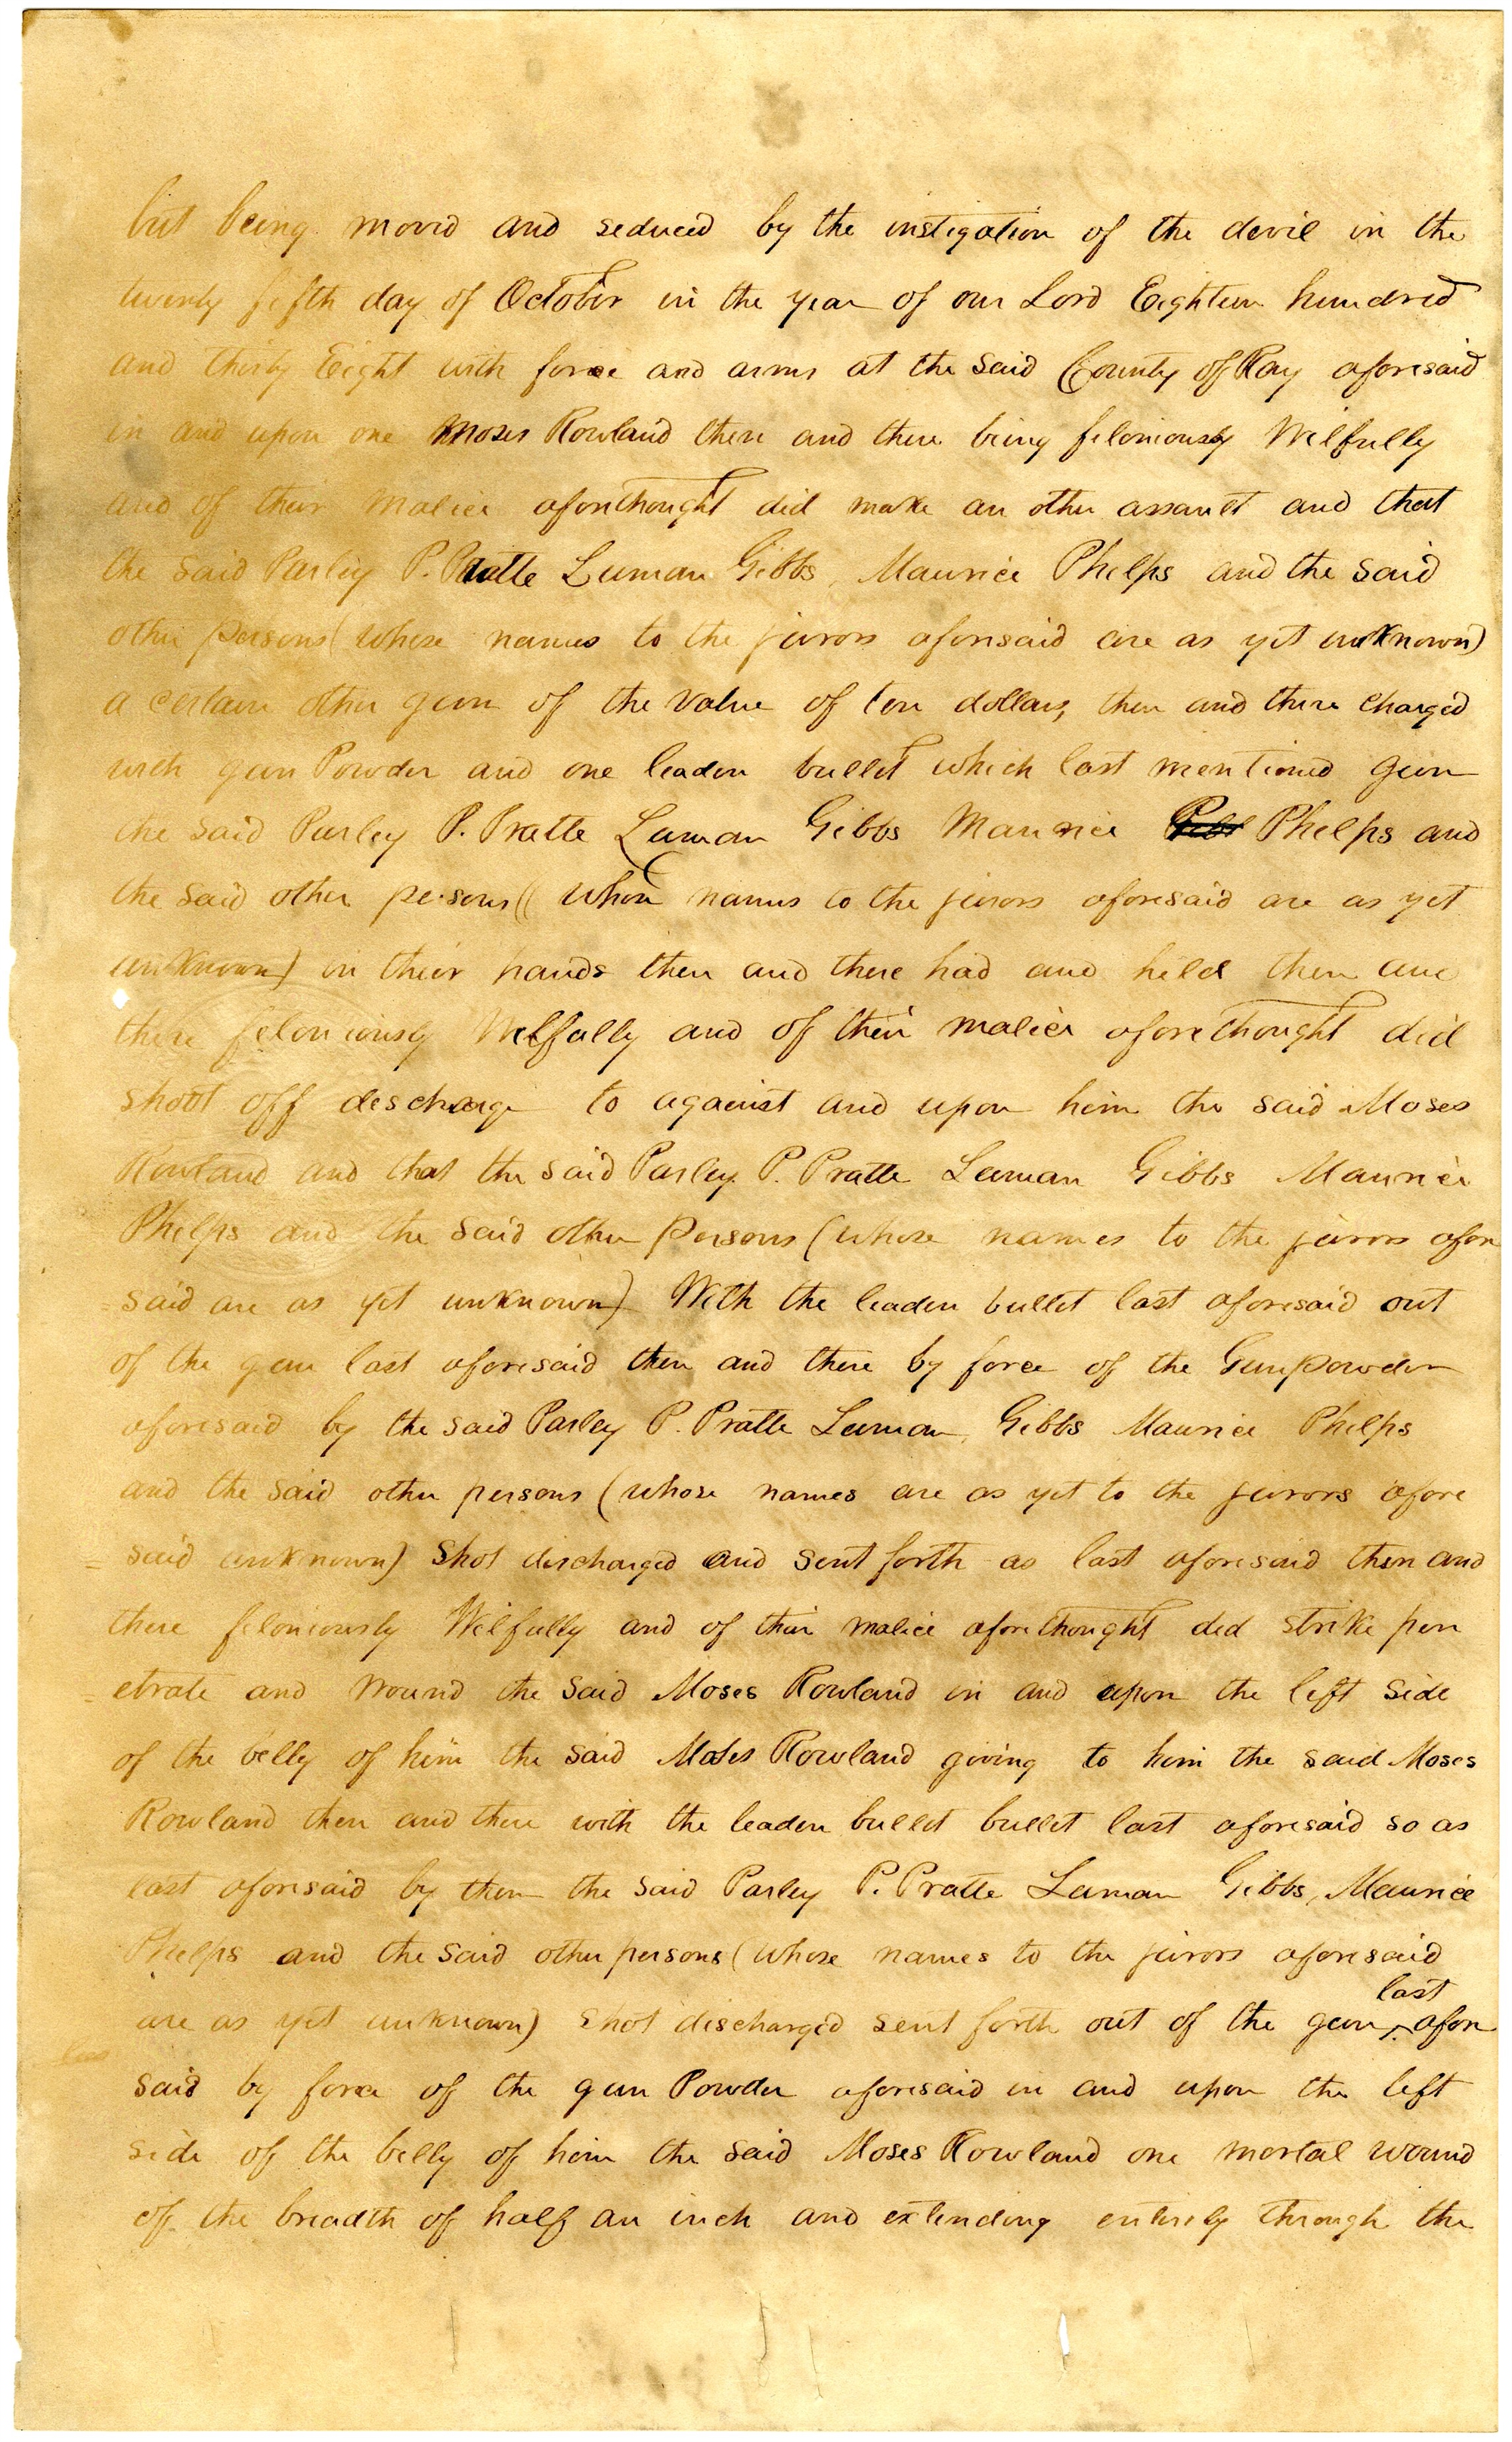 but being moved and seduced by the instigation of the devil in the
twenty fifth day of October in the year of our Lord Eighteen hundred
and thirty Eight with force and arms at the said County of Ray aforesaid
in and upon one Moses Rowland then and there being feloniously Wilfully
and of their malice aforethought did make an other assault and that
the said Parley P. Pratte Luman Gibbs, Maurice Phelps and the said
other persons (whose names to the jurors aforesaid are as yet unknown)
a certain other gun of the value of ten dollars, then and there charged
with gun Powder and one leaden bullet which last mentioned gun
the said Parley P. Pratte Luman Gibbs Maurice Phelps and
the said other persons (( whose names to the jurors aforesaid are as yet
unknown) in their hands then and there had and held then and
there feloniously Wilfully and of their malice aforethought did
shoot off discharge to against and upon him the said Moses
Rowland and that the said Parley P. Pratte Luman Gibbs Maurice
Phelps and the said other persons (whose names to the jurors afore
=said are as yet unknown) With the leaden bullet last aforesaid out
of the gun last aforesaid then and there by force of the Gunpowder
aforesaid by the said Parley P. Pratte Luman, Gibbs Maurice Phelps
and the said other persons (whose names are as yet to the jurors afore
=said unknown) shot discharged and sent forth as last aforesaid then and
there feloniously Wilfully and of their malice aforethought did strike pen
=etrate and wound the said Moses Rowland in and upon the left side
of the belly of him the said Moses Rowland giving to him the said Moses
Rowland then and there with the leaden bullet bullet last aforesaid so as
last aforesaid by them the said Parley P. Pratte Luman Gibbs, Maurice
Phelps and the said other persons (whose names to the jurors aforesaid
are as yet unknown) shot discharged sent forth out of the gun ^last afore
said by force of the gun Powder aforesaid in and upon the left
side of the belly of him the said Moses Rowland one mortal wound
of the breadth of half an inch and extending entirely through the